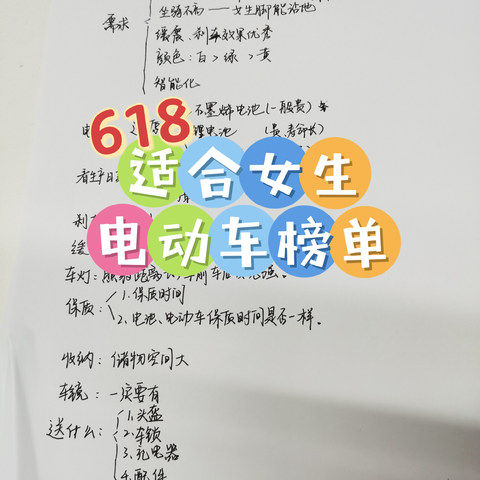 坐骑不高——女生脚能沾地
需求
缓震、刹车效果优秀
颜色：白>绿>黄
智能化
石墨烯电池(一般贵)
电
锂电池 (贵,寿命长)
618
适合女生
看生产日
电动车榜单
刹
缓
车灯：
保质：
1.保质时间
2.电池、电动车保质时间是否一样。
收纳：储物空间大
车镜：一定要有
送什么：
1.头盔
2.车锁
3.充电器
4.配件